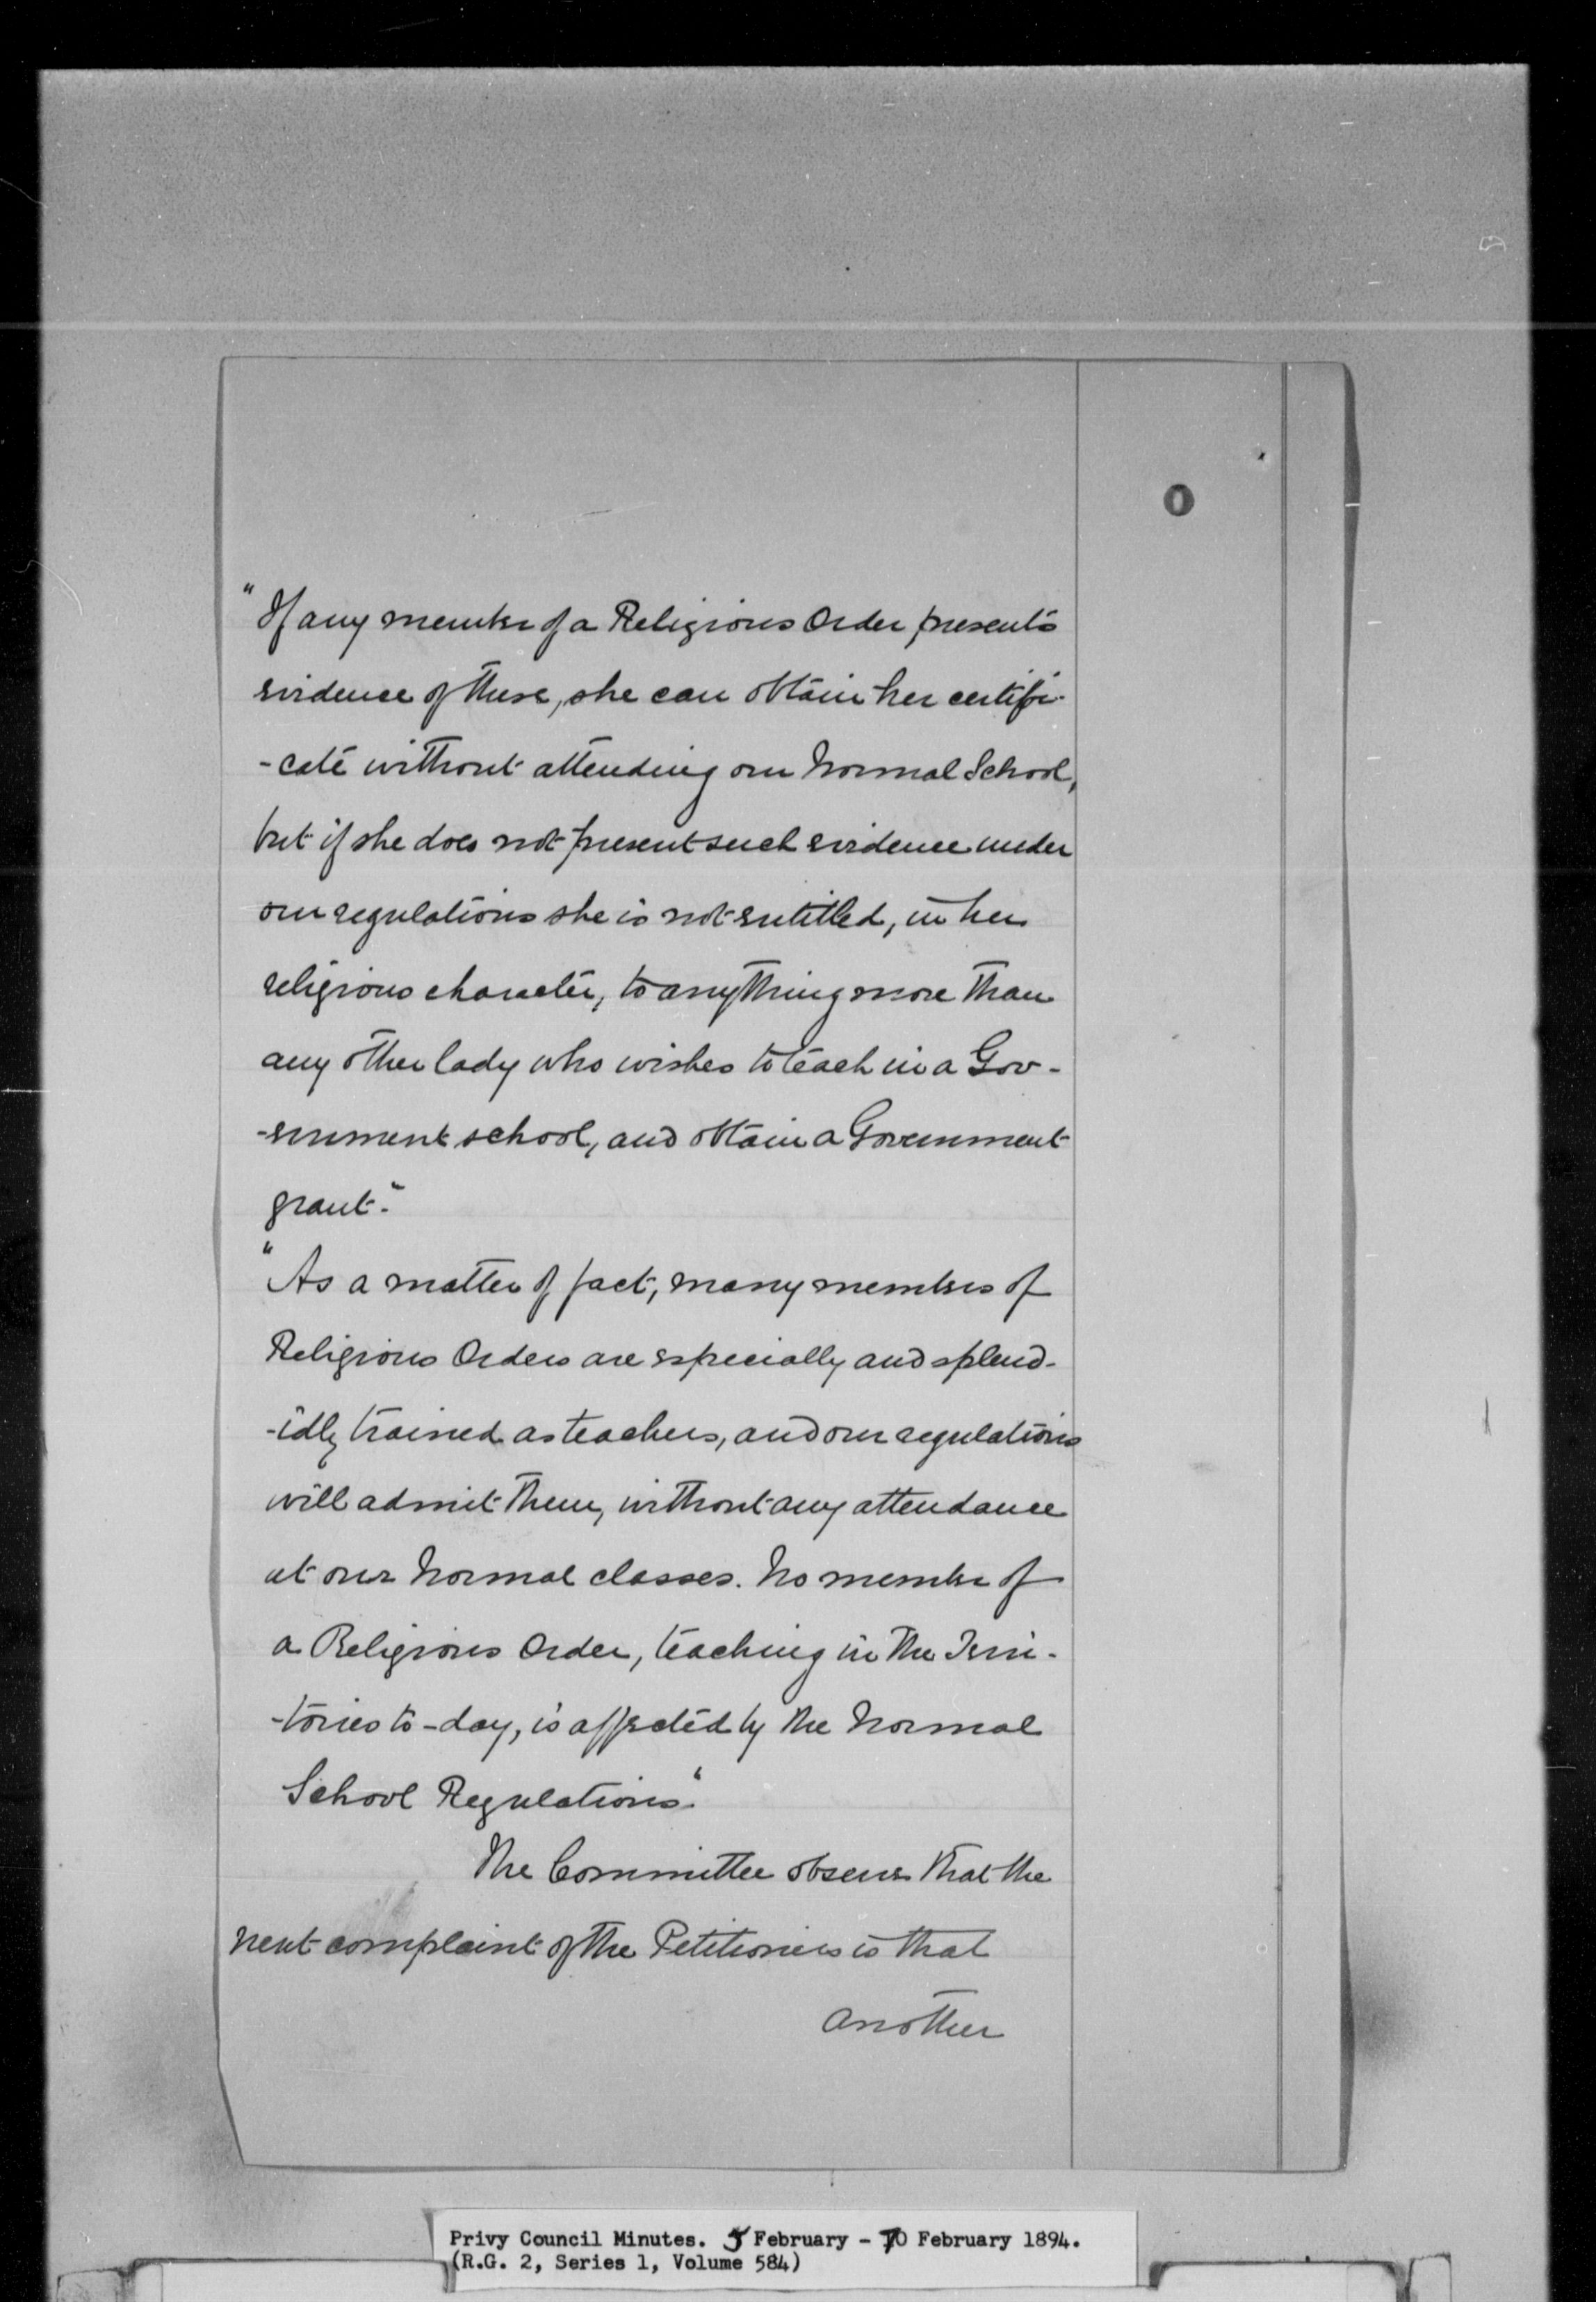 "If any member of a Religious Order presents
evidence of these, she can obtain her certifi-
-cate without attending our Normal School,
but if she does not present such evidence under
our regulations she is not entitled, in her
religious character, to anything more than
any other lady who wishes to teach in a Gov-
-ernment school, and obtain a Government
grant."
"As a matter of fact, many members of
Religious Orders are especially and splend-
-idly trained as teachers, and our regulations
will admit them, without any attendance
at our Normal classes. No member of
a Religious Order, teaching in the Terri-
-tories to-day, is affected by the Normal
School Regulations."
The Committee observe that the
next complaint of the Petitioners is that
another
Privy Council Minutes. 5 February - 10 February 1894.
(R.G. 2, Series 1, Volume 584)